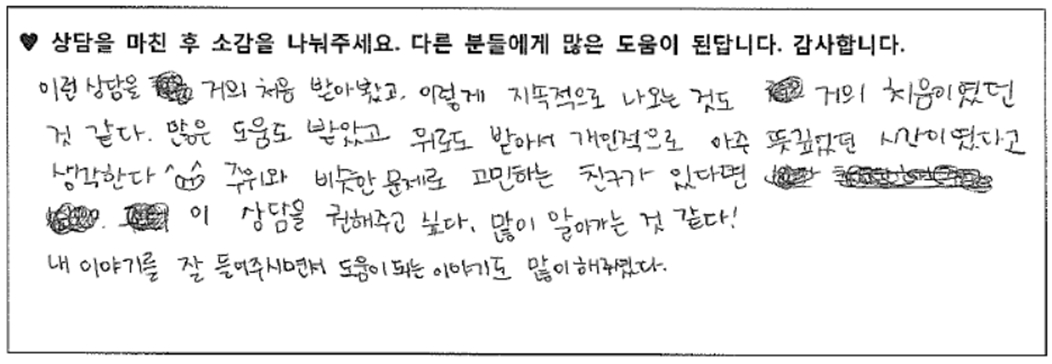 ♥ 상담을 마친 후 소감을 나눠주세요. 다른 분들에게 많은 도움이 된답니다. 감사합니다.
이런 상담을 거의 처음 받아봤고, 이렇게 지속적으로 나오는 것도 거의 처음이였던
것 같다. 많은 도움도 받았고 위로도 받아서 개인적으로 아주 뜻깊었던 시간이였다고
생각한다 ^ω^ 주위와 비슷한 문제로 고민하는 친구가 있다면
이 상담을 권해주고 싶다. 많이 알아가는 것 같다!
내 이야기를 잘 들어주시면서 도움이 되는 이야기도 많이해주셨다.